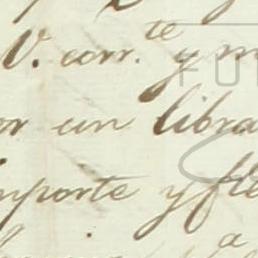 V. corr.te y m
or un libra
mporte y fle
a